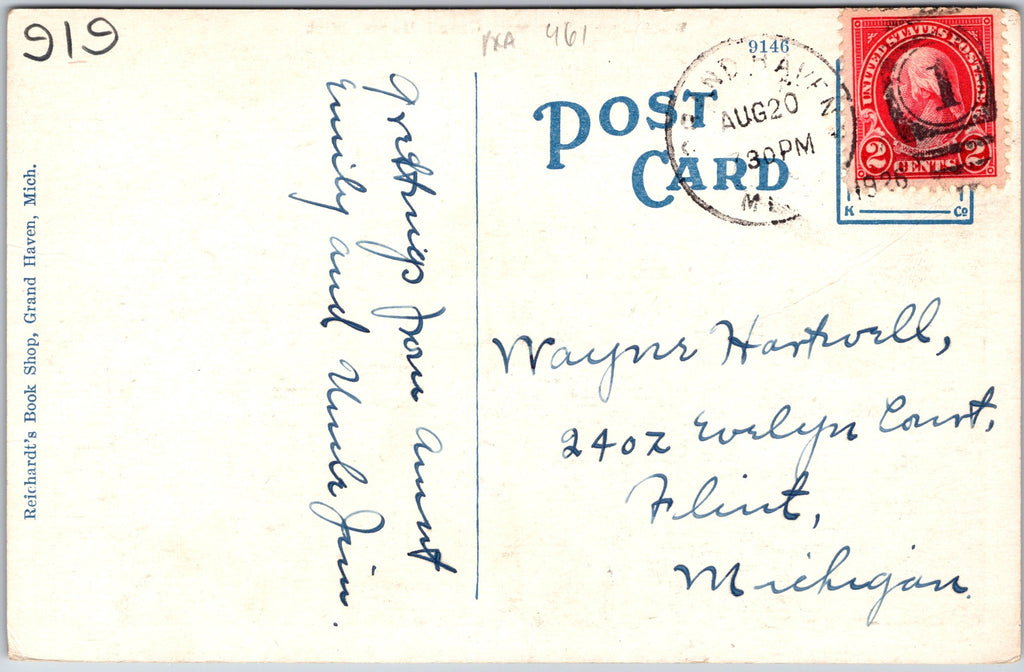 919
PXA 461
9146
POST
CARD
GRAND HAVEN
AUG 20
730PM
1926
MI
UNITED STATES POSTAGE
1
2 CENTS 2
K Co
Greetings from Aunt
Emily and Uncle Jim.
Wayne Hartwell,
2402 Evelyn Court,
Flint,
Michigan.
Reichardt's Book Shop, Grand Haven, Mich.